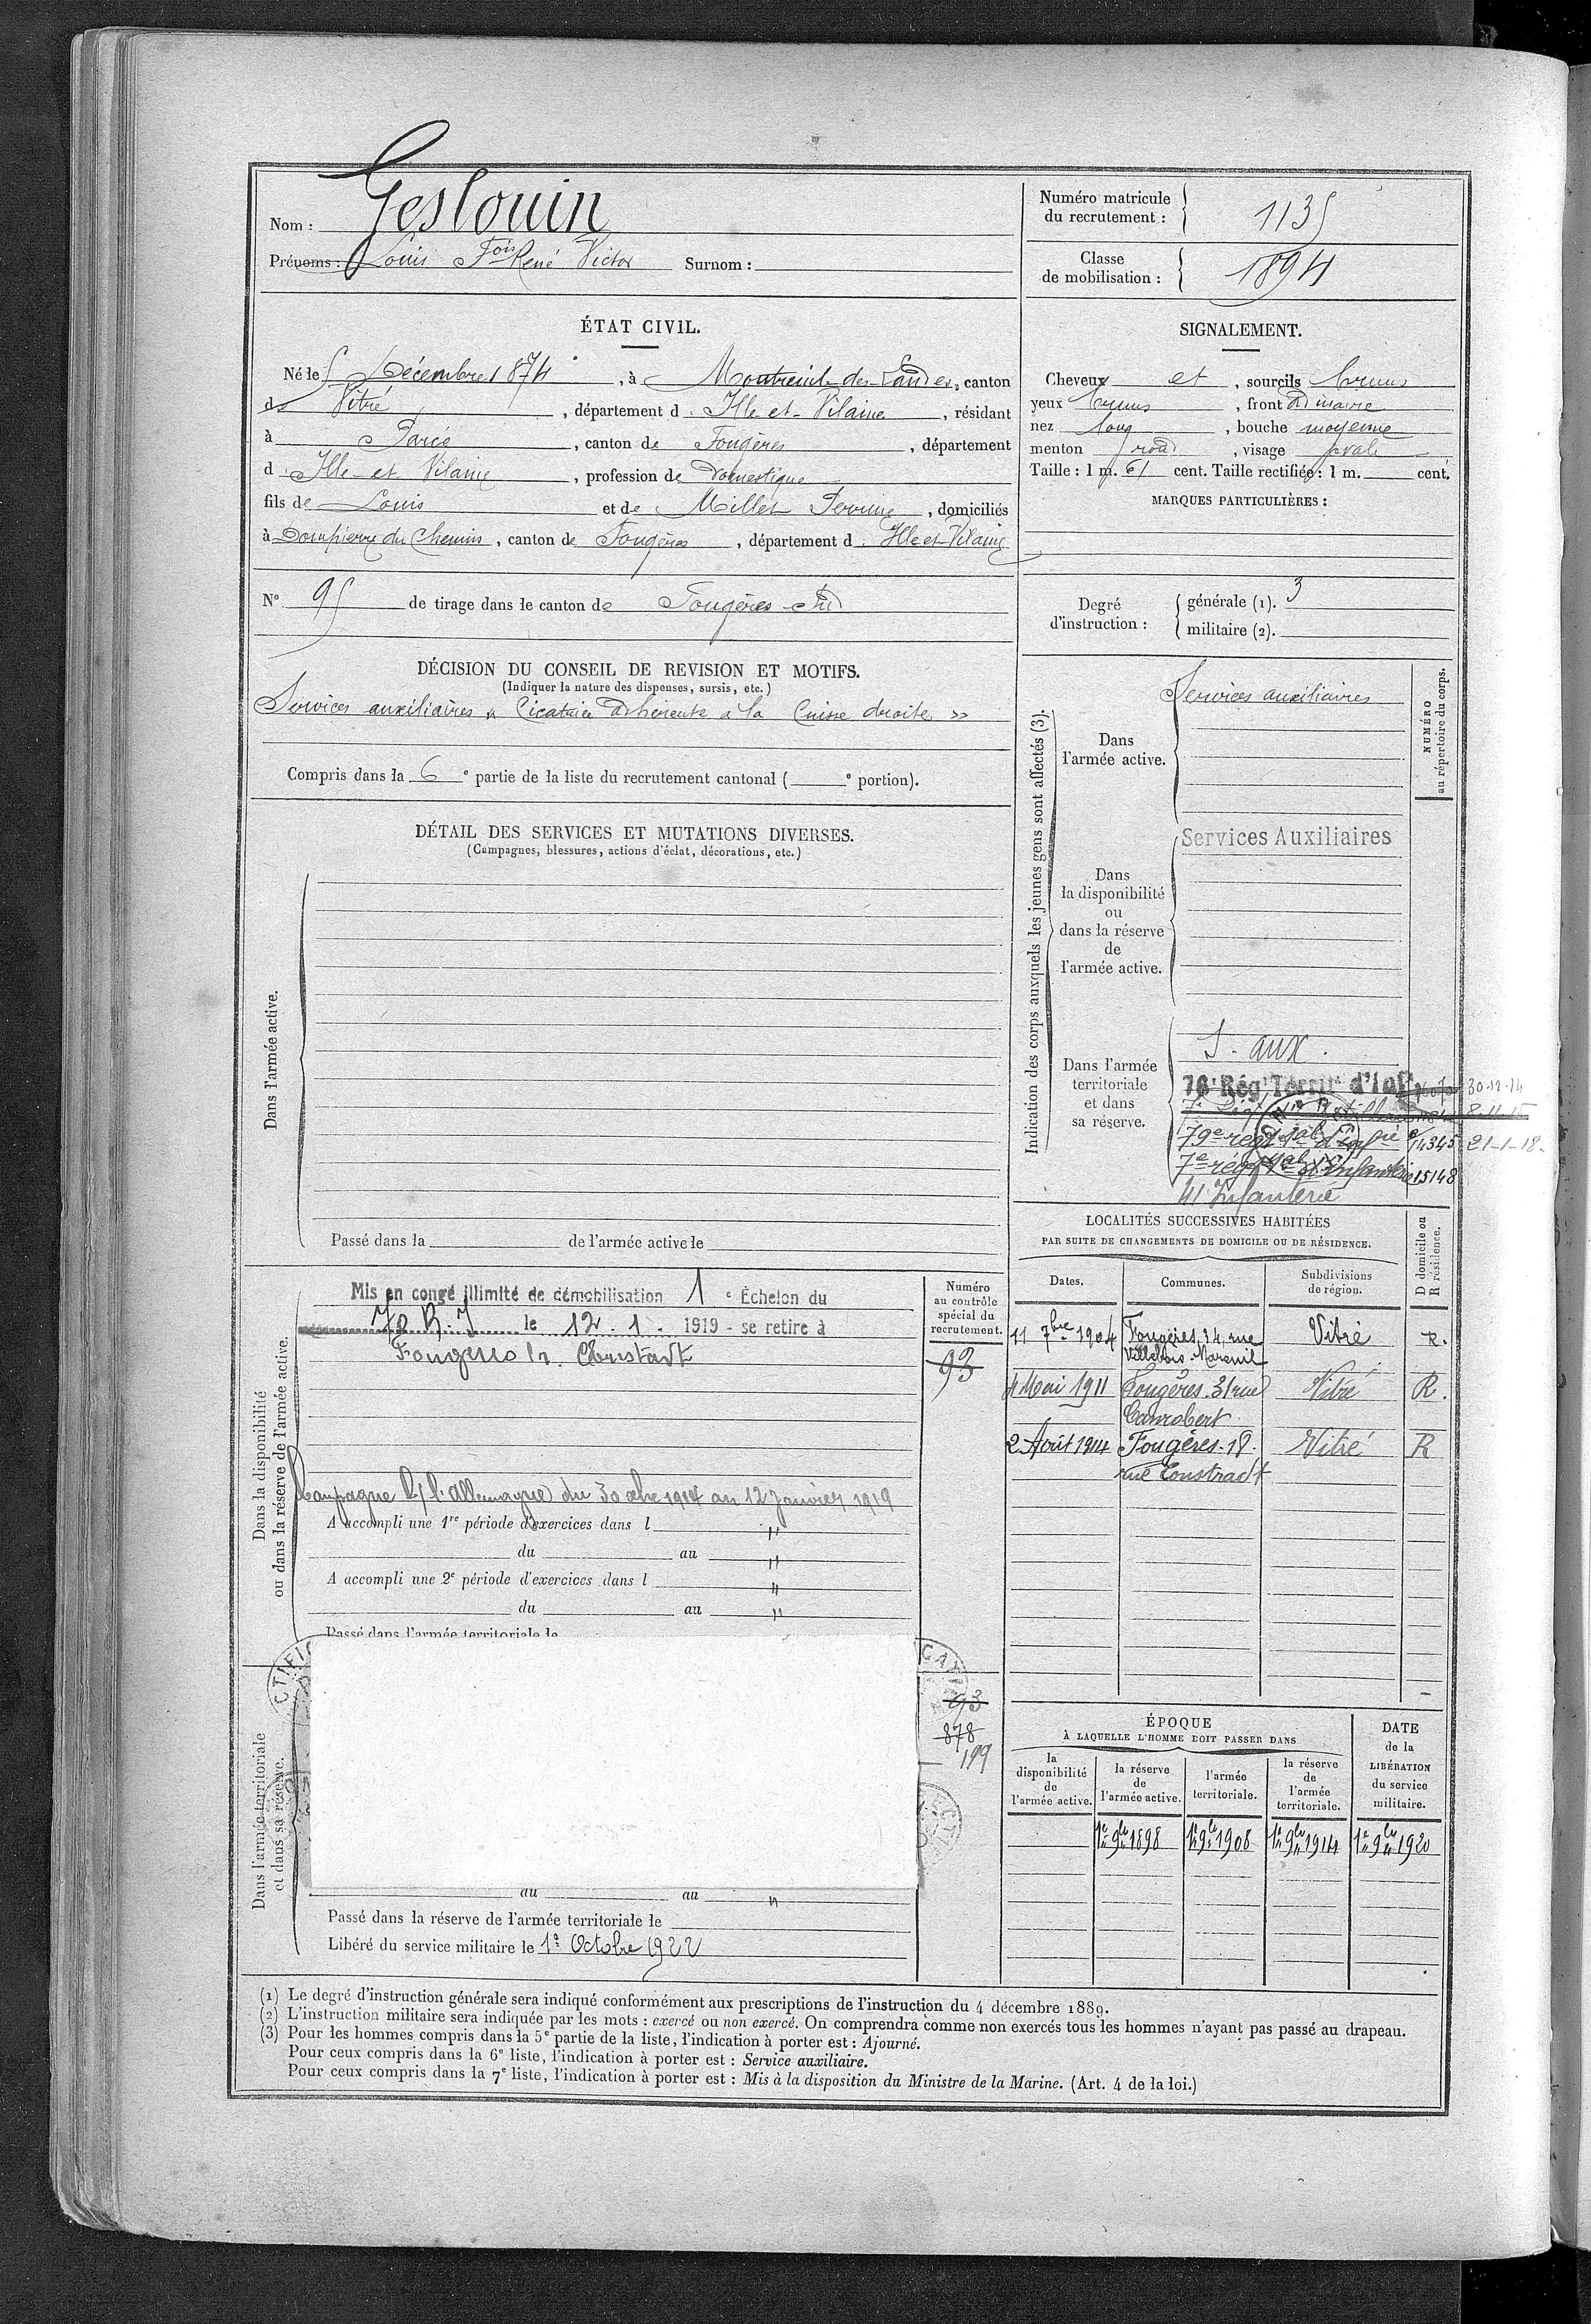 Nom : Geslouin
Prénoms : Louis Fois René Victor Surnom :
Numéro matricule du recrutement : 1135
Classe de mobilisation : 1894
ÉTAT CIVIL.
Né le 5 Décembre 1874, à Montreuil-des-Landes, canton
de Vitré, département d Ille-et-Vilaine, résidant
à Parcé, canton de Fougères, département
d Ille-et-Vilaine, profession de Domestique
fils de Louis et de Millet Perrine, domiciliés
à Dompierre du Chemin, canton de Fougères, département d Ille-et-Vilaine
N° 95 de tirage dans le canton de Fougères Sud
SIGNALEMENT.
Cheveux et, sourcils bruns
yeux bruns, front ordinaire
nez long, bouche moyenne
menton rond, visage ovale
Taille : 1 m. 61 cent. Taille rectifiée : 1 m. cent.
MARQUES PARTICULIÈRES :
Degré d'instruction :
générale (1). 3
militaire (2).
DÉCISION DU CONSEIL DE REVISION ET MOTIFS.
(Indiquer la nature des dispenses, sursis, etc.)
Services auxiliaires « Cicatrice adhérente à la Cuisse droite »
Compris dans la 6e partie de la liste du recrutement cantonal ( e portion).
DÉTAIL DES SERVICES ET MUTATIONS DIVERSES.
(Campagnes, blessures, actions d'éclat, décorations, etc.)
Dans l'armée active.
Passé dans la de l'armée active le
Indication des corps auxquels les jeunes gens sont affectés (3).
NUMÉRO
au répertoire du corps.
Dans
l'armée active.
Services auxiliaires
Dans
la disponibilité
ou
dans la réserve
de
l'armée active.
Services Auxiliaires
Dans l'armée
territoriale
et dans
sa réserve.
S. aux.
76e Régt Territ. d'Inf. 30-12-14
8-11-15
14345 21-1-18
15148
41 Infanterie
LOCALITÉS SUCCESSIVES HABITÉES
PAR SUITE DE CHANGEMENTS DE DOMICILE OU DE RÉSIDENCE.
D domicile ou
R résidence.
Dates. Communes. Subdivisions de région.
11 7bre 1904 Fougères, 24, rue Villebois-Mareuil Vitré R.
4 Mai 1911 Fougères. 31 rue Canrobert Vitré R.
2 Août 1914 Fougères. 18. rue Constradt Vitré R
Dans la disponibilité
ou dans la réserve de l'armée active.
Numéro
au contrôle
spécial du
recrutement.
93
Mis en congé illimité de démobilisation 1e Échelon du
70 R. I le 12. 1. 1919 - se retire à
Fougères
Campagne c/ l'Allemagne du 30 xbre 1914 au 12 janvier 1919
A accompli une 1re période d'exercices dans l "
du au "
A accompli une 2e période d'exercices dans l "
du au "
Passé dans l'armée territoriale le
Dans l'armée territoriale
et dans sa réserve.
93
878
199
du au "
Passé dans la réserve de l'armée territoriale le
Libéré du service militaire le 1er Octobre 1922
ÉPOQUE
À LAQUELLE L'HOMME DOIT PASSER DANS
la disponibilité de l'armée active.
la réserve de l'armée active.
l'armée territoriale.
la réserve de l'armée territoriale.
DATE de la LIBÉRATION du service militaire.
1er 9bre 1898 1er 9bre 1908 1er 9bre 1914 1er 9bre 1920
(1) Le degré d'instruction générale sera indiqué conformément aux prescriptions de l'instruction du 4 décembre 1889.
(2) L'instruction militaire sera indiquée par les mots : exercé ou non exercé. On comprendra comme non exercés tous les hommes n'ayant pas passé au drapeau.
(3) Pour les hommes compris dans la 5e partie de la liste, l'indication à porter est : Ajourné.
Pour ceux compris dans la 6e liste, l'indication à porter est : Service auxiliaire.
Pour ceux compris dans la 7e liste, l'indication à porter est : Mis à la disposition du Ministre de la Marine. (Art. 4 de la loi.)